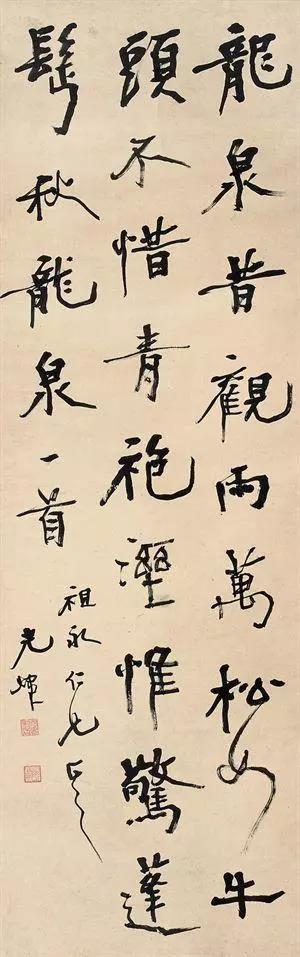 龍泉昔觀雨萬松如牛
頭不惜青袍溼惟驚蓬
髩秋龍泉一首
祖永仁兄
光煒